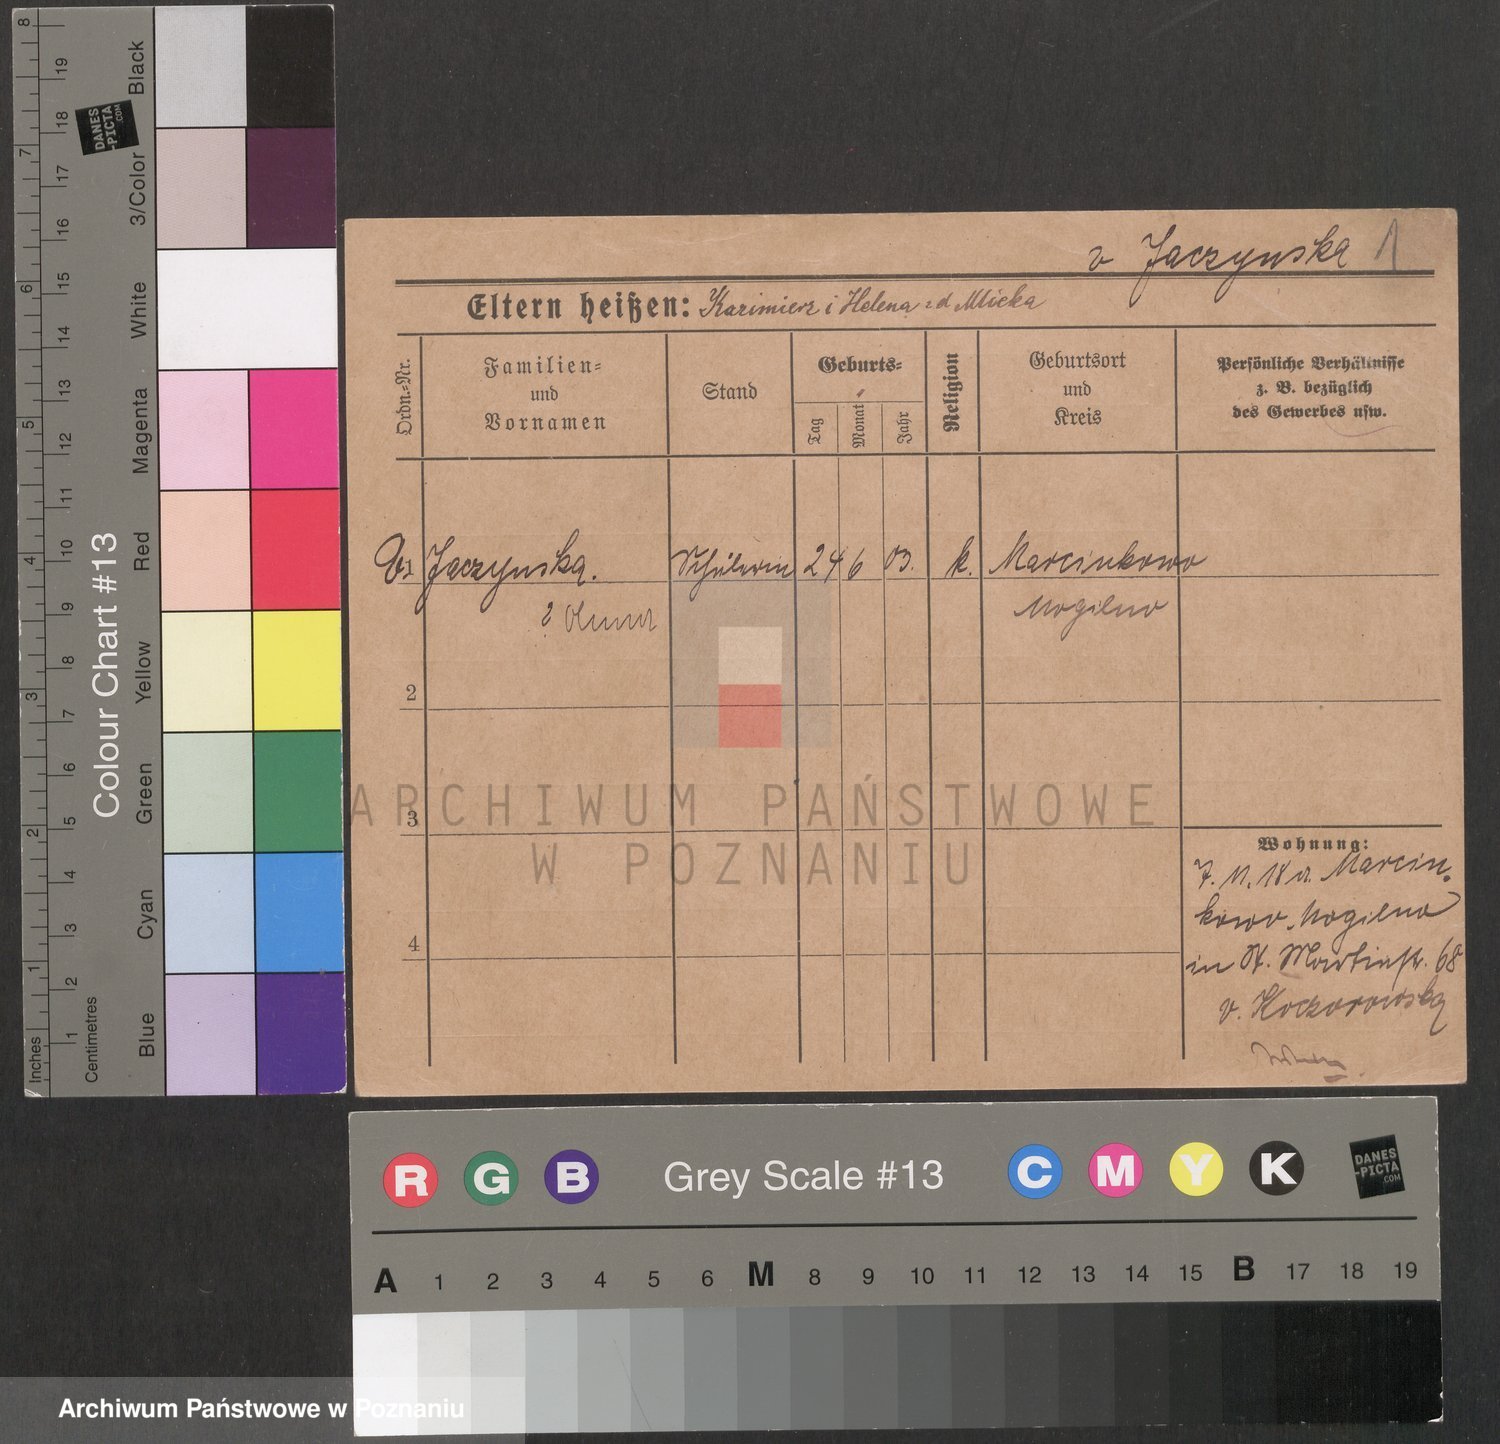 v Jaczynska 1
Eltern heißen: Kazimierz i Helena zd Mlicka
Ordn.-Nr.
Familien-
und
Vornamen
Stand
Geburts-
Tag
Monat
Jahr
Religion
Geburtsort
und
Kreis
Persönliche Verhältnisse
z. B. bezüglich
des Gewerbes usw.
v 1 Jaczynska. Schülerin 24 6 03. k. Marcinkowo
Mogilno
2
3
4
Wohnung:
7. 11. 18 a. Marcin-
kowo. Mogilno
in St. Martinstr. 68
v. Koczorowska
ARCHIWUM PAŃSTWOWE
W POZNANIU
Colour Chart #13
Inches
1 2 3 4 5 6 7 8
Centimetres
1 2 3 4 5 6 7 8 9 10 11 12 13 14 15 16 17 18 19
Blue
Cyan
Green
Yellow
Red
Magenta
White
3/Color
Black
DANES
-PICTA
.COM
R G B Grey Scale #13 C M Y K
DANES
-PICTA
.COM
A 1 2 3 4 5 6 M 8 9 10 11 12 13 14 15 B 17 18 19
Archiwum Państwowe w Poznaniu